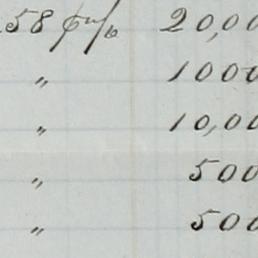 58 20,00
" 1000
" 10,00
" 500
" 500